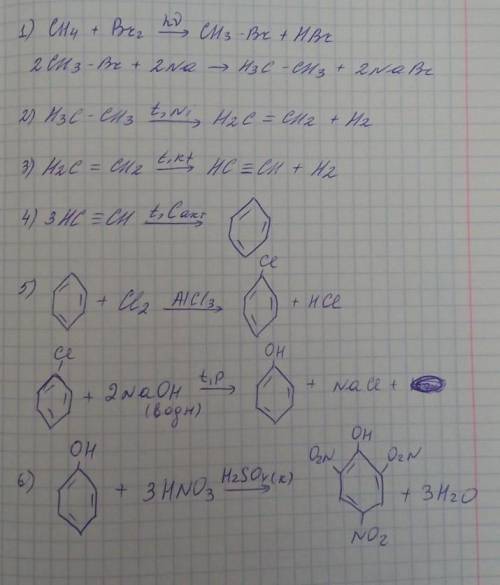 1) CH4 + Br2 hν→ CH3-Br + HBr
2CH3-Br + 2Na → H3C-CH3 + 2NaBr
2) H3C-CH3 t,Ni→ H2C=CH2 + H2
3) H2C=CH2 t,kt→ HC≡CH + H2
4) 3HC≡CH t,Cакт→
Cl
5) + Cl2 AlCl3→ + HCl
Cl OH
+ 2NaOH t,p→ + NaCl +
(водн)
OH O2N OH O2N
6) + 3HNO3 H2SO4(к)→ + 3H2O
NO2